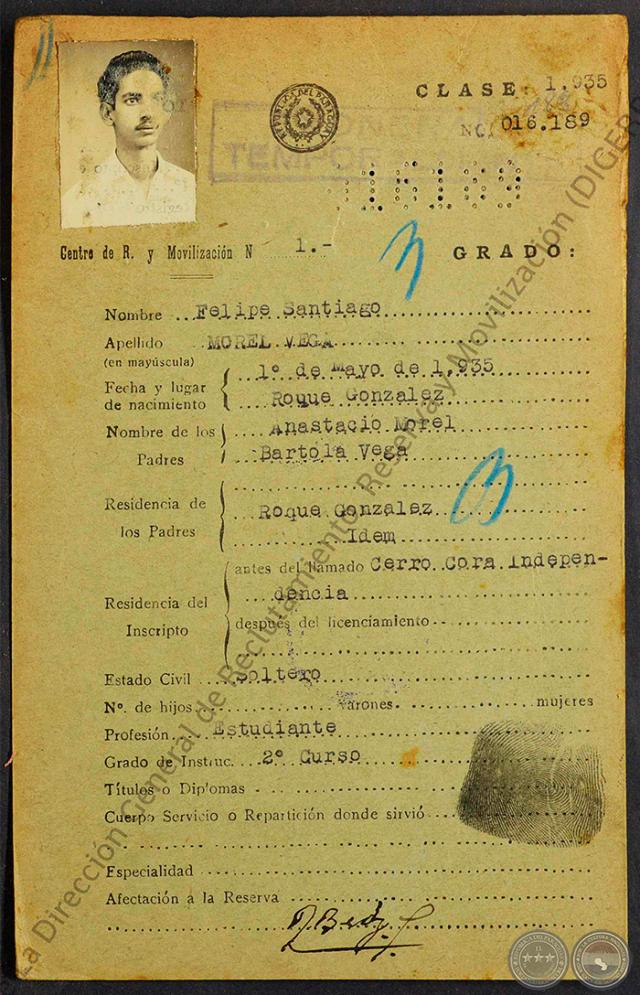 CLASE: 1.935
REPUBLICA DEL PARAGUAY
No. 016.189
TEMPOR
16189
Centro de R. y Movilización N 1.-
GRADO:
Nombre Felipe Santiago
Apellido MOREL VEGA
(en mayúscula)
Fecha y lugar de nacimiento 1º de Mayo de 1,935
Roque Gonzalez
Nombre de los Padres Anastacio Morel
Bartola Vega
Residencia de los Padres Roque Gonzalez
Idem
Residencia del Inscripto antes del llamado Cerro Cora Indepen-
dencia
después del licenciamiento
Estado Civil Soltero
Nº. de hijos varones mujeres
Profesión Estudiante
Grado de Instruc. 2º Curso
Títulos o Diplomas
Cuerpo Servicio o Repartición donde sirvió
Especialidad
Afectación a la Reserva
La Dirección General de Reclutamiento, Reserva y Movilización (DIGER